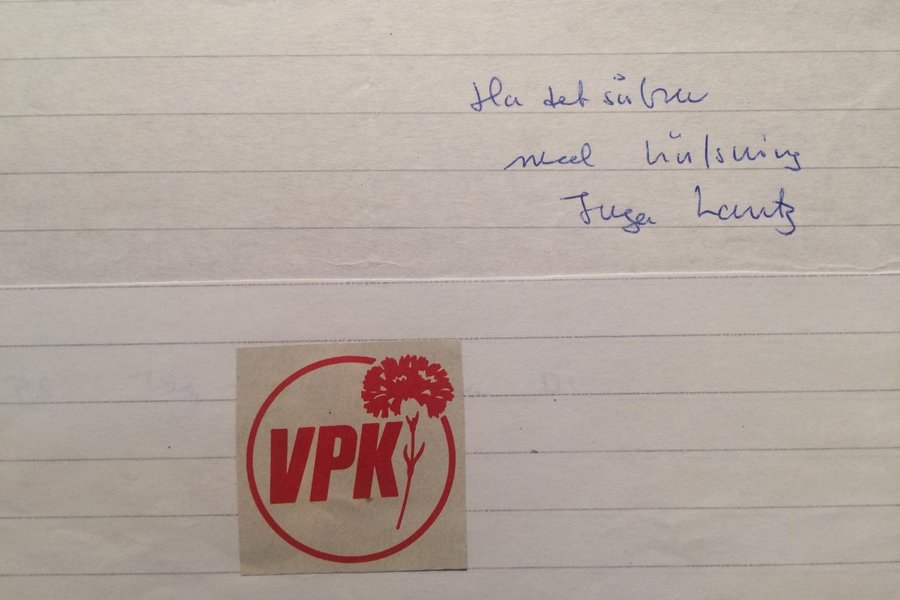 Ha det så bra
med hälsning
Inga Lantz
VPK